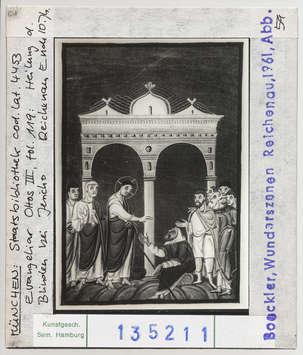 MÜNCHEN: Staatsbibliothek cod. lat. 4453
Evangeliar Ottos III. fol. 119: Heilung d.
Blinden bei Jericho Reichenau Ende 10. Jh.
Kunstgesch.
Sem. Hamburg
135211
Boeckler, Wunderszenen Reichenau, 1961, Abb.
59